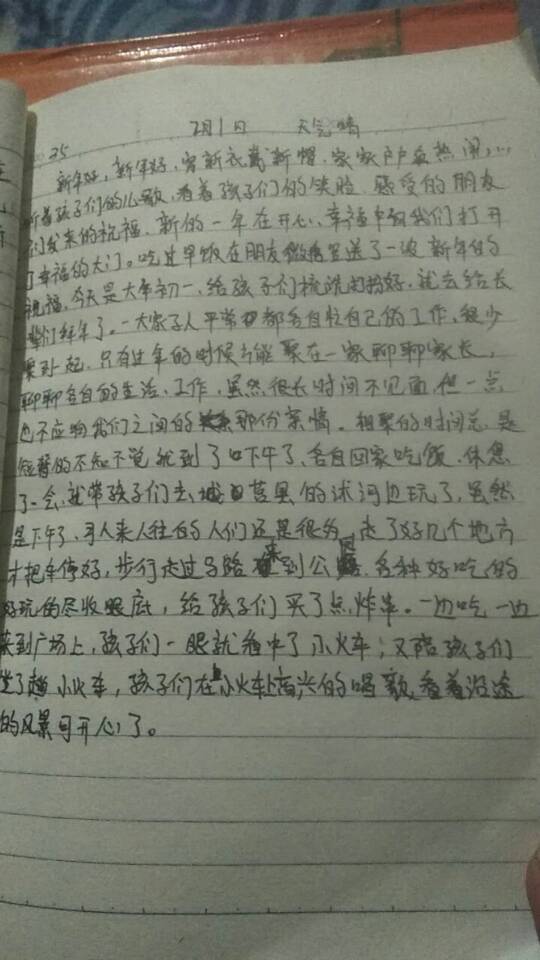 2月1日 天气晴
25
新年好,新年好,穿新衣戴新帽,家家户户最热闹,...
听着孩子们的儿歌,看着孩子们的笑脸,感受的朋友
们发来的祝福,新的一年在开心、幸福中向我们打开
了幸福的大门。吃过早饭在朋友微信里送了一波新年的
祝福,今天是大年初一,给孩子们梳洗打扮好,就去给长
辈们拜年了。一大家子人平常都各自忙自己的工作,很少
聚到一起,只有过年的时候才能聚在一家聊聊家长,
聊聊各自的生活、工作,虽然很长时间不见面但一点
也不应响我们之间的那份亲情。相聚的时间总是
短暂的不知不觉就到了下午了,各自回家吃饭,休息
了一会,就带孩子们去城里莒县的沭河边玩了,虽然
是下午了,可人来人往的人们还是很多,走了好几个地方
才把车停好,步行走过马路来到公园,各种好吃的
好玩的尽收眼底,给孩子们买了点炸串。一边吃一边
来到广场上,孩子们一眼就看中了小火车;又陪孩子们
坐了趟小火车,孩子们在小火车上高兴的唱歌,看着沿途
的风景可开心了。